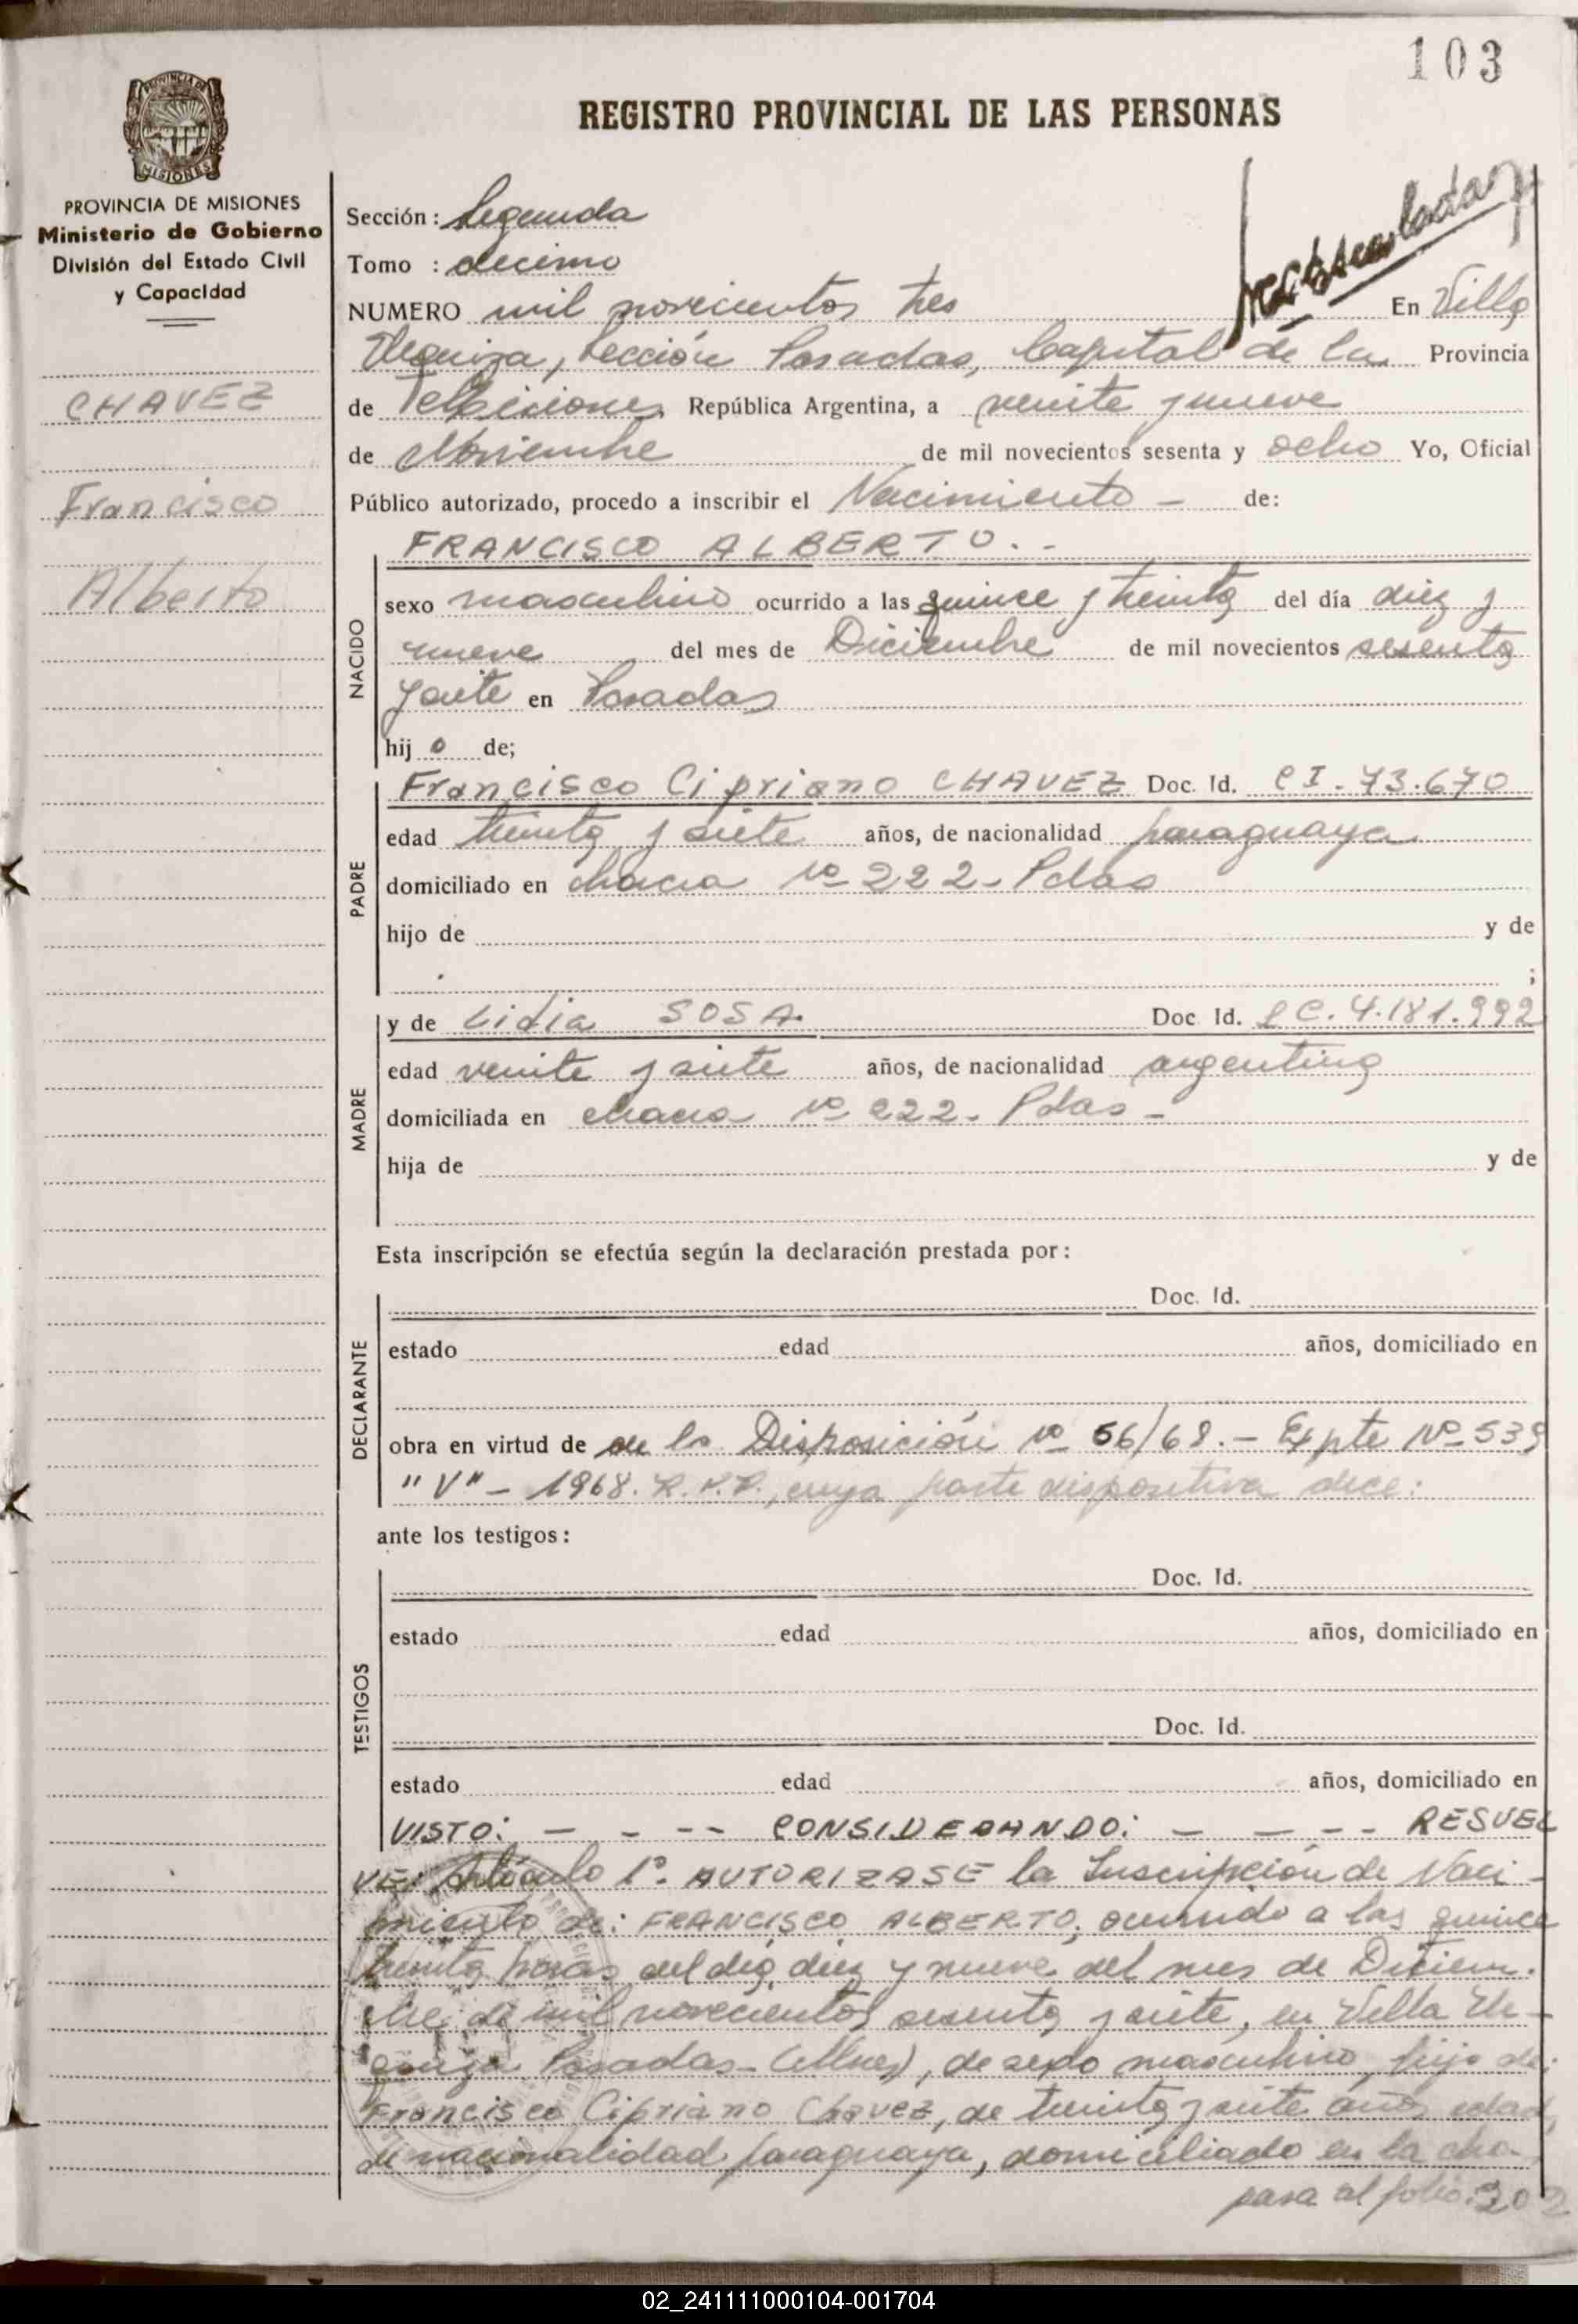 103
REGISTRO PROVINCIAL DE LAS PERSONAS
PROVINCIA DE
MISIONES
PROVINCIA DE MISIONES
Ministerio de Gobierno
División del Estado Civil
y Capacidad
CHAVEZ
Francisco
Alberto
Sección: Segunda
Tomo : decimo
NUMERO mil novecientos tres En Villa
Urquiza, Sección Posadas, Capital de la Provincia
de Misiones República Argentina, a veinte y nueve
de Noviembre de mil novecientos sesenta y ocho Yo, Oficial
Público autorizado, procedo a inscribir el Nacimiento - de:
FRANCISCO ALBERTO. -
NACIDO
sexo masculino ocurrido a las quince y treinta del día diez y
nueve del mes de Diciembre de mil novecientos sesenta
y siete en Posadas
hij o de;
PADRE
Francisco Cipriano CHAVEZ Doc. Id. CI. 73.670
edad treinta y siete años, de nacionalidad paraguaya
domiciliado en chacra Nº 222- Pdas
hijo de y de
;
MADRE
y de Lidia SOSA. Doc. Id. LC. 4.181.992
edad veinte y siete años, de nacionalidad argentina
domiciliada en chacra Nº 222- Pdas -
hija de y de
Esta inscripción se efectúa según la declaración prestada por:
DECLARANTE
Doc. Id.
estado edad años, domiciliado en
obra en virtud de de la Disposición Nº 56/68. - Expte Nº 539
"V" - 1968. R.P.P., cuya parte dispositiva dice:
ante los testigos:
TESTIGOS
Doc. Id.
estado edad años, domiciliado en
Doc. Id.
estado edad años, domiciliado en
VISTO: - - -- CONSIDERANDO: - - -- RESUEL
VE: Artículo 1º. AUTORIZASE la Inscripción de Naci-
miento de: FRANCISCO ALBERTO, ocurrido a las quince
treinta horas del día diez y nueve del mes de Diciem.
bre de mil novecientos sesenta y siete, en Villa Ur-
quiza Posadas- (Mnes), de sexo masculino, hijo de:
Francisco Cipriano Chavez, de treinta y siete años edad,
de nacionalidad paraguaya, domiciliado en la cha-
pasa al folio: 202
02_241111000104-001704